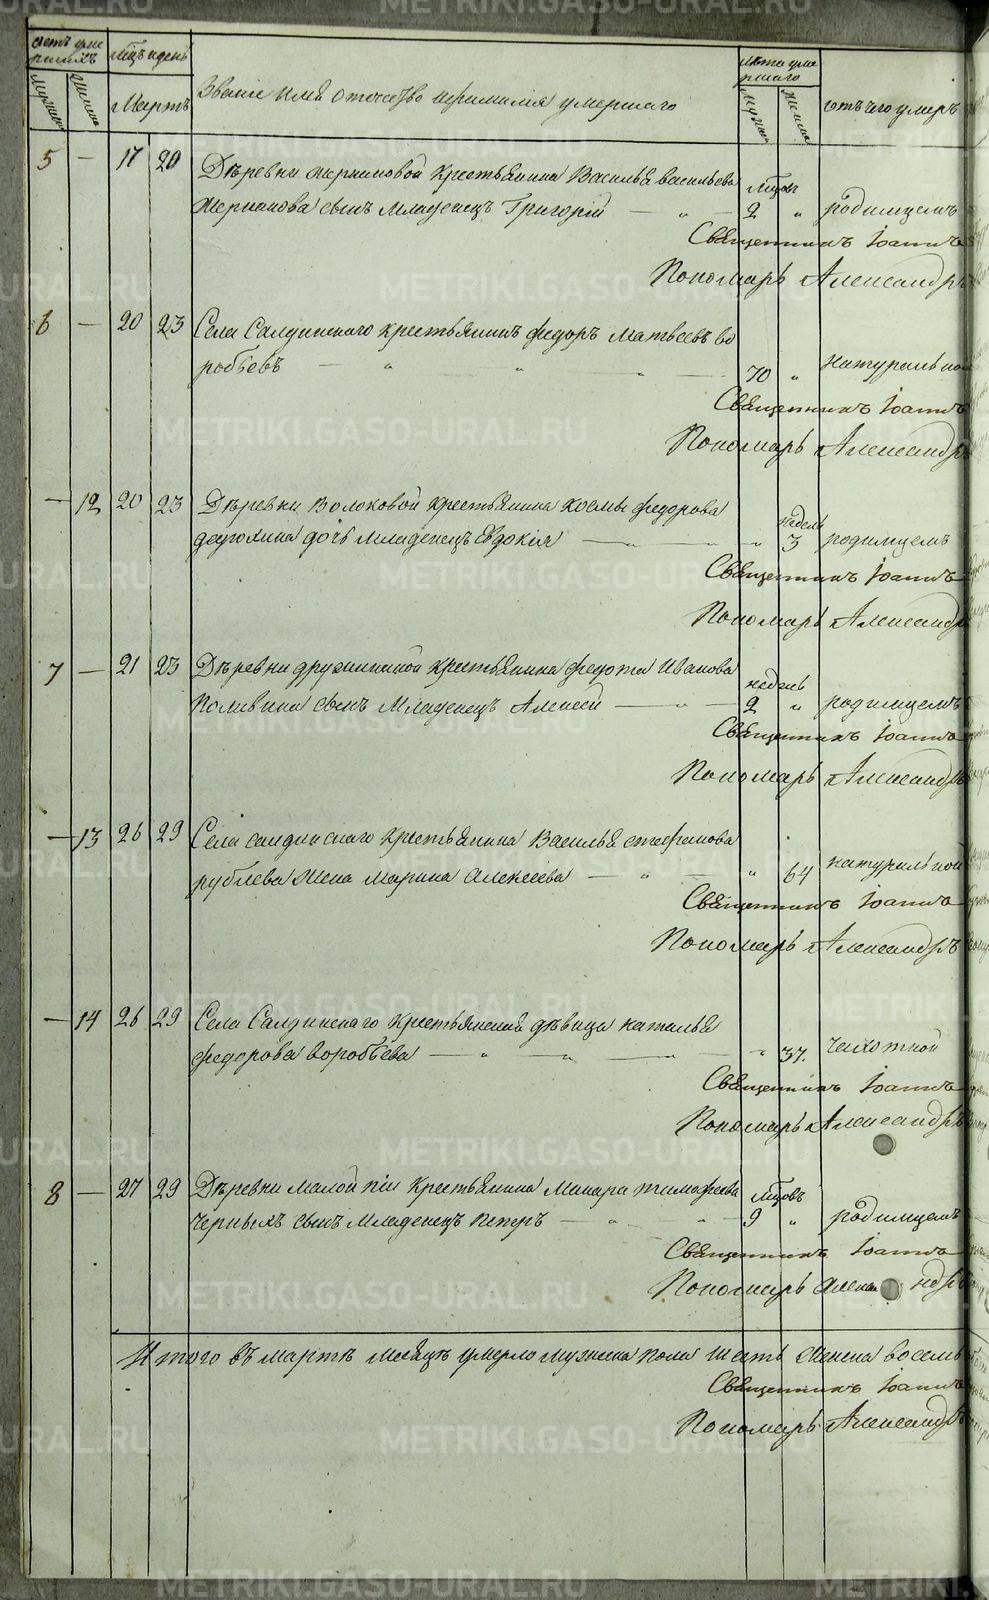 Счетъ умершихъ
Мѣцъ и день
Лѣта умершаго
Мужеска
Женска
Мартъ
Званіе имя отечество и фамилія умершаго
Мужеска
Женска
отъ чего умеръ
5 — 17 20 Дѣревни Мериновой крестьянина Василья васильева мѣцовъ
Меринова сынъ младенецъ Григорій — „ — 2 „ родимцемъ
Священникъ Іоаннъ
Пономарь Александръ
6 — 20 23 Села Салдинскаго крестьянинъ федоръ Матвеевъ во
робьевъ — „ „ „ — 70 „ натуральной
Священникъ Іоаннъ
Пономарь Александръ
— 12 20 23 Дѣревни Волоковой крестьянина космы федорова недѣль
дочь младенецъ Евдокія — „ — „ — „ 3 родимцемъ
Священникъ Іоаннъ
Пономарь Александръ
7 — 21 23 Дѣревни дружининой крестьянина федота Иванова недель
Поливина сынъ Младенецъ Алексей — „ — 2 „ родимцемъ
Священникъ Іоаннъ
Пономарь Александръ
— 13 26 29 Села салдинскаго крестьянина Василья стефанова
рублева жена Марина Алексеева — „ — „ 64 натуральной
Священникъ Іоаннъ
Пономарь Александръ
— 14 26 29 Села Салдинскаго крестьянская дѣвица наталья
федорова воробьева — „ — „ — „ 37. чахоткой
Священникъ Іоаннъ
Пономарь Александръ
8 — 27 29 Дѣревни малой крестьянина Макара тимофеева мѣцовъ
черныхъ сынъ младенецъ петръ — „ — „ — 9 „ родимцемъ
Священникъ Іоаннъ
Пономарь Александръ
Итого въ мартѣ месяцѣ умерло мужеска пола шесть женска восемь
Священникъ Іоаннъ
Пономарь Александръ
METRIKI.GASO-URAL.RU